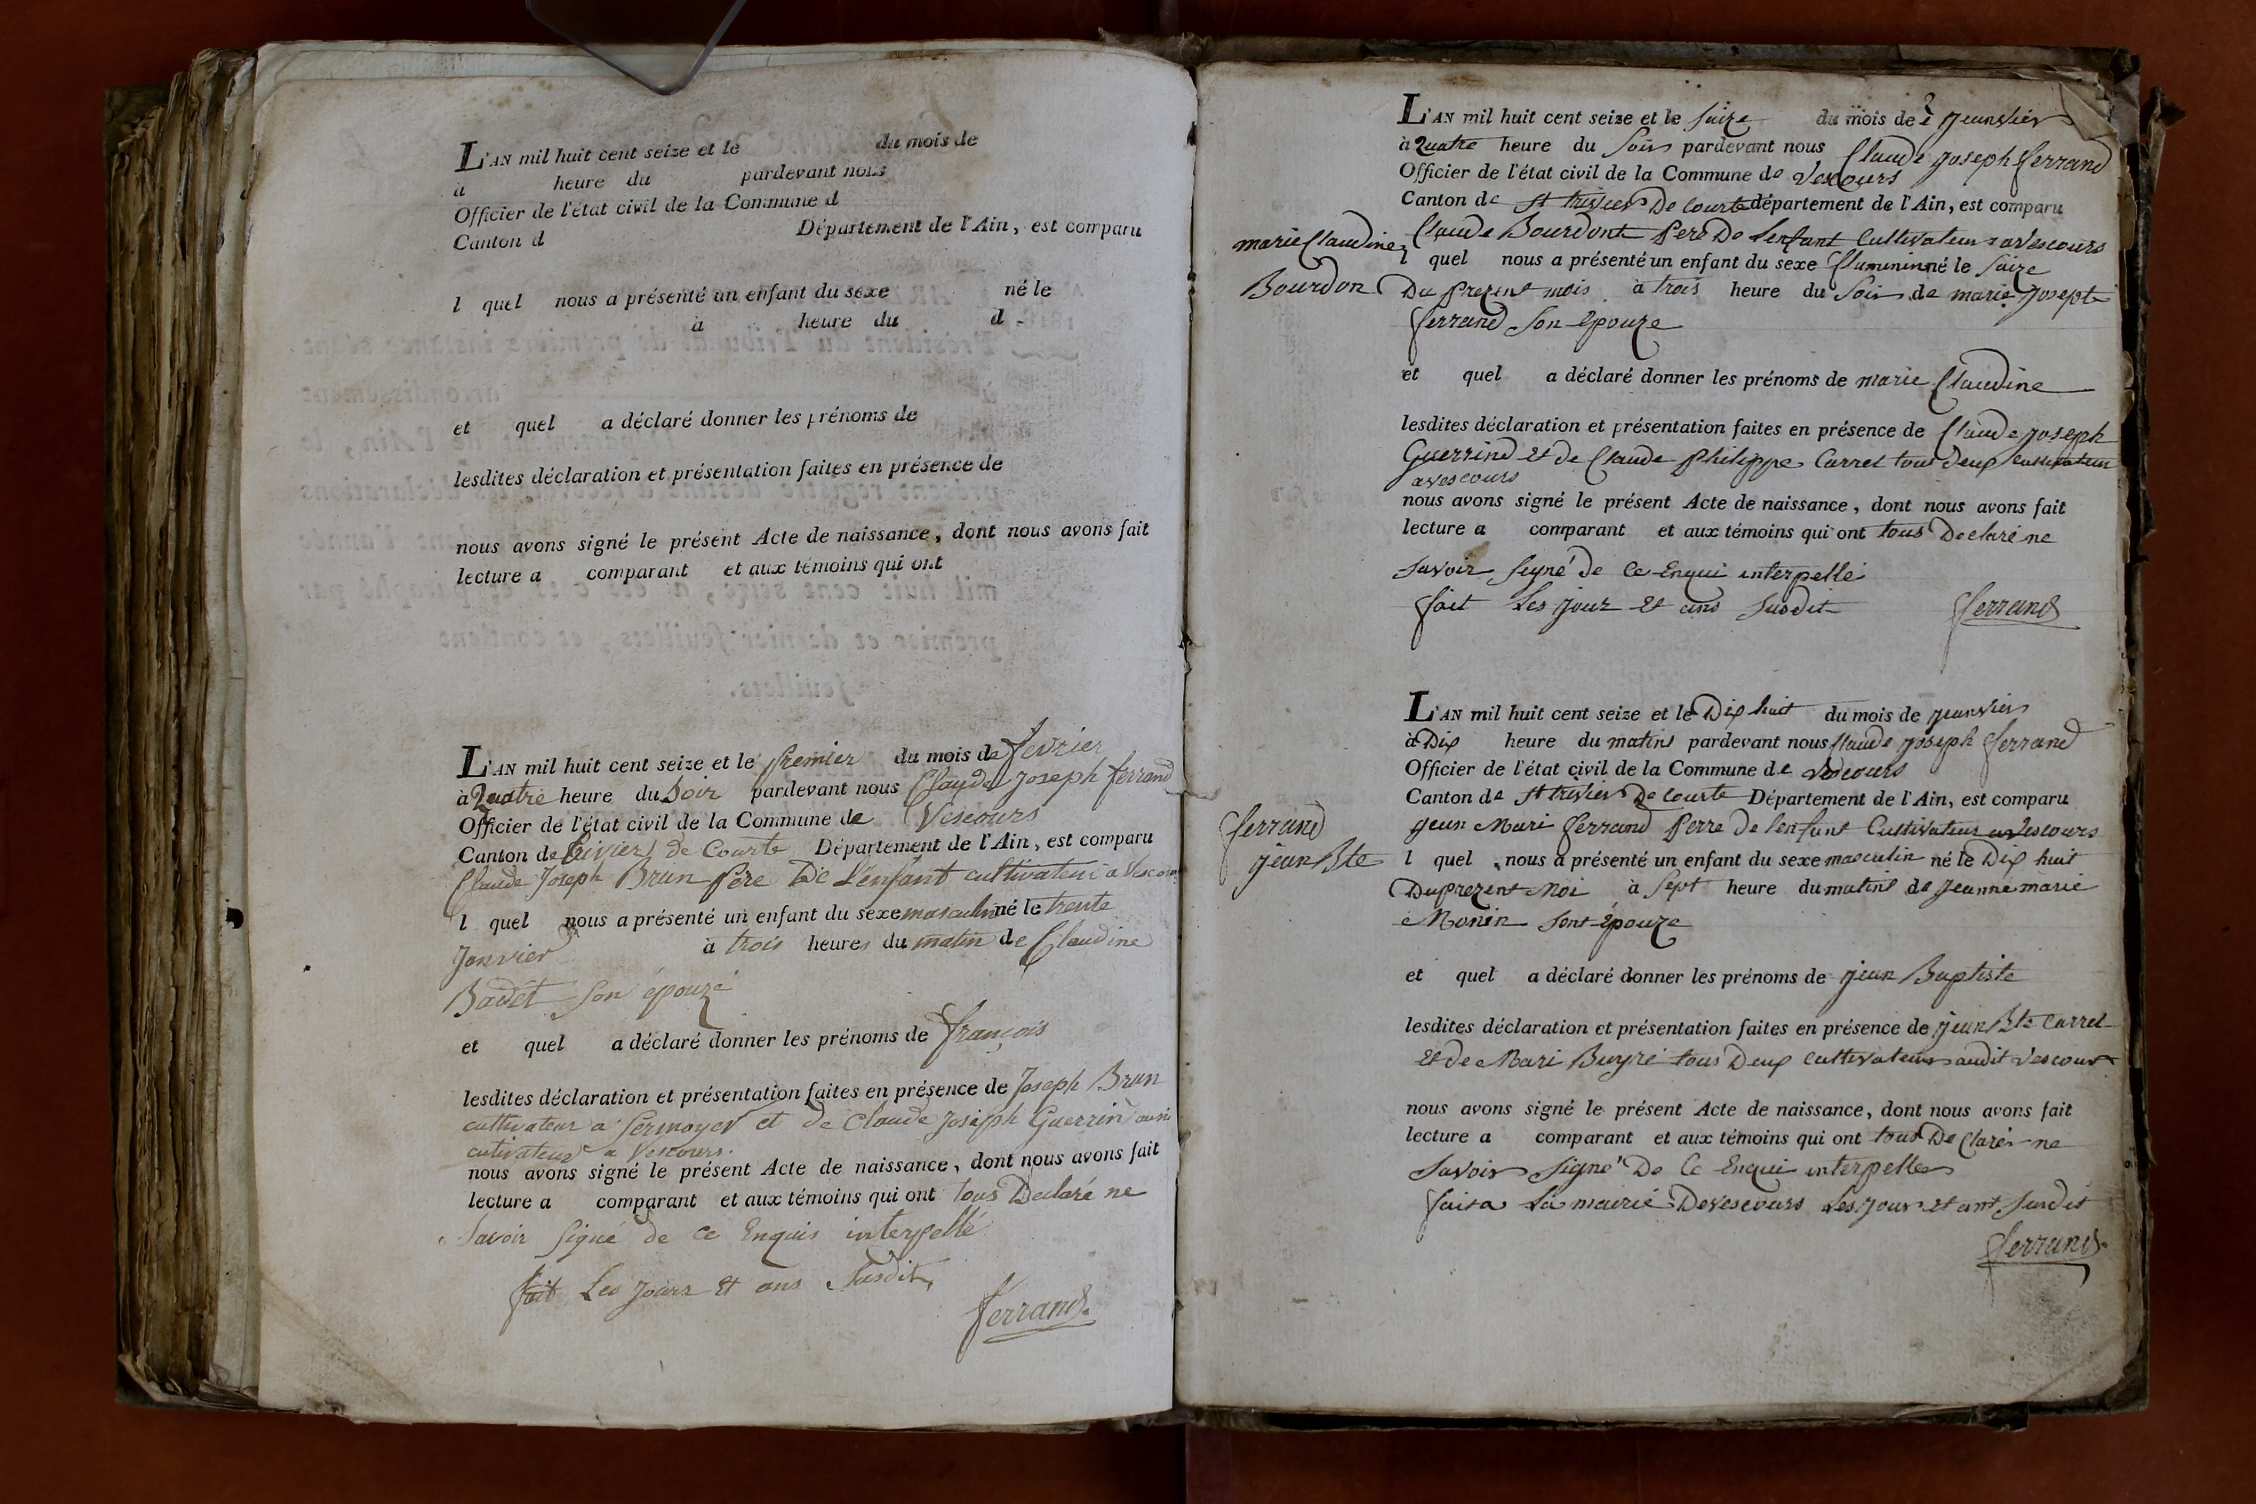 L'AN mil huit cent seize et le du mois de
à heure du pardevant nous
Officier de l'état civil de la Commune d
Canton d Département de l'Ain, est comparu
l quel nous a présenté un enfant du sexe né le
à heure du d
et quel a déclaré donner les prénoms de
lesdites déclaration et présentation faites en présence de
nous avons signé le présent Acte de naissance, dont nous avons fait
lecture a comparant et aux témoins qui ont
L'AN mil huit cent seize et le premier du mois de fevrier
à Quatre heure du Soir pardevant nous Claude Joseph ferrand
Officier de l'état civil de la Commune de Vescours
Canton de trivier de Courte Département de l'Ain, est comparu
Claude Joseph Brun père De L'enfant cultivateur a Vescours
l quel nous a présenté un enfant du sexe masculin né le trente
Janvier à trois heures du matin de Claudine
Badet son épouze
et quel a déclaré donner les prénoms de françois
lesdites déclaration et présentation faites en présence de Joseph Brun
cultivateur a Sermoyer et de Claude Joseph Guerrin aussi
cutivateur a Vescours.
nous avons signé le présent Acte de naissance, dont nous avons fait
lecture a comparant et aux témoins qui ont tous Declaré ne
Savoir Signé de ce Enquis interpellé
fait Les Jours et ans Susdit
ferrand
L'AN mil huit cent seize et le Saize du mois de jeanvier
à Quatre heure du Soir pardevant nous Claude joseph ferrand
Officier de l'état civil de la Commune de Vescours
Canton de St trivier De Courte département de l'Ain, est comparu
Claude Bourdont pere De L'enfant Cultivateur a Vescours
marie Claudine
Bourdon
l quel nous a présenté un enfant du sexe né le Saize
Du prezent mois à trois heure du Soir de marie josepte
ferrand Son epouze
et quel a déclaré donner les prénoms de marie Claudine
lesdites déclaration et présentation faites en présence de Claude joseph
Guerrind et de Claude philippe Carrel tous deux cultivateur
a vescours
nous avons signé le présent Acte de naissance, dont nous avons fait
lecture a comparant et aux témoins qui ont tous Declaré ne
savoir signé de Ce Enqui interpellé
fait Les jour et ans susdit
ferrand
L'AN mil huit cent seize et le Dix huit du mois de jeanvier
à Dix heure du matins pardevant nous Claude joseph ferrand
Officier de l'état civil de la Commune de Vescours
Canton de St trivier De Courte Département de l'Ain, est comparu
jean Mari ferrand perre de l'enfant Cultivateur a Vescours
ferrand
jean Bte
l quel nous a présenté un enfant du sexe masculin né le Dix huit
Du prezent Moi à Sept heure du matins de jeanne marie
Monin sont épouze
et quel a déclaré donner les prénoms de jean Baptiste
lesdites déclaration et présentation faites en présence de jean Bte Carrel
et de Mari Buyre tous Deux cultivateur audit vescours
nous avons signé le présent Acte de naissance, dont nous avons fait
lecture a comparant et aux témoins qui ont tous De Clarér ne
savoir signé De Ce Enqui interpelle
fait a La mairie De vescours Les jour et ant susdit
ferrand